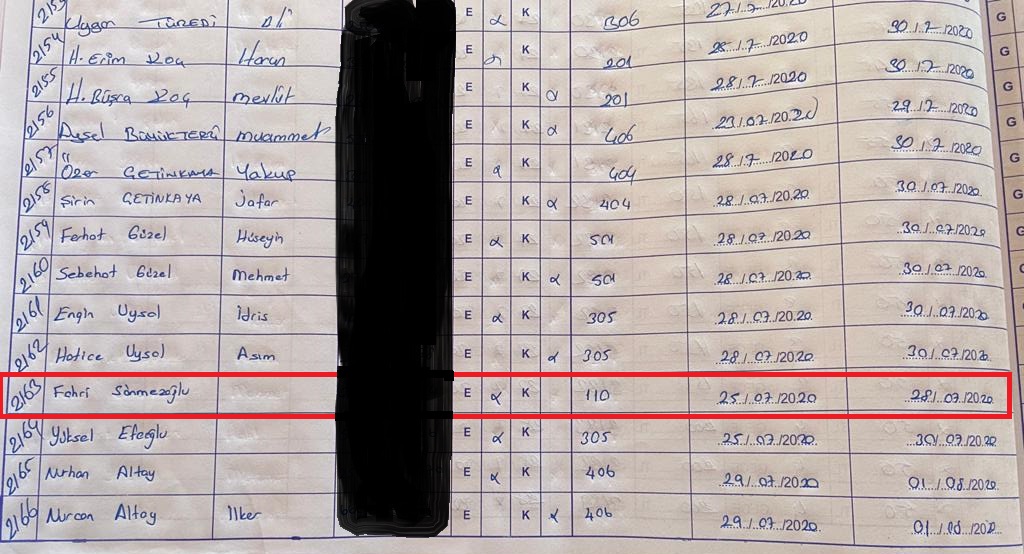 2153 Uygar TÜREDİ Ali E α K 1306 27.1.7./2020
2154 H. Erim Koç Harun E α K 201 28.1.7./2020 30.1.7./2020 G
2155 H. Büşra Koç mevlüt E K α 201 28.1.7./2020 30.1.7./2020 G
2156 Aysel muammet E K α 406 23.1.07./2020 29.1.7./2020 G
2157 Özer ÇETİNKAYA Yakup E α K 404 28.1.7./2020 30.1.7./2020 G
2158 Şirin ÇETİNKAYA Jafar E K α 404 28.1.07./2020 30.1.07./2020 G
2159 Ferhat Güzel Hüseyin E α K 501 28.1.07./2020 30.1.07./2020 G
2160 Sebehat Güzel Mehmet E K α 501 28.1.07./2020 30.1.07./2020
2161 Engin Uysal İdris E α K 305 28.1.07./2020 30.1.07./2020
2162 Hatice Uysal Asım E K α 305 28.1.07./2020 30.1.07./2020
2163 Fahri Sönmezoğlu E α K 110 25.1.07./2020 28.1.07./2020
2164 Yüksel Efeoğlu E α K 305 25.1.07./2020 30.1.07./2020
2165 Nurhan Altay E α K 406 29.1.07./2020 01.1.08./2020
2166 Nurcan Altay İlker E K α 406 29.1.07./2020 01.1.08./2020